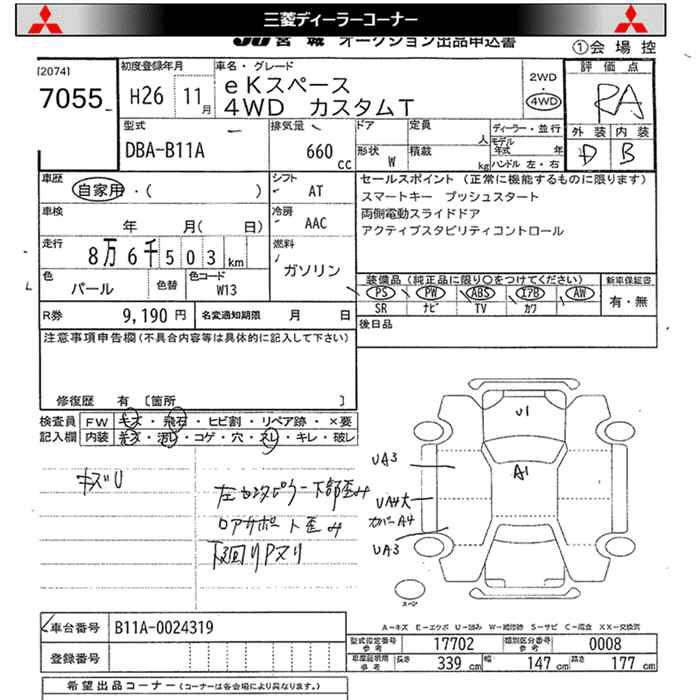 三菱ディーラーコーナー
JU 宮城 オークション出品申込書 ①会場控
[2074]
7055
初度登録年月 車名・グレード
H26 11月 eKスペース
4WD カスタムT
2WD
4WD
評価点
RA
外装 内装
D B
型式 排気量 ドア 定員 人 ディーラー・並行
DBA-B11A 660cc 形状 W 積載 kg モデル年式 年
ハンドル 左・右
車歴 自家用・( )
シフト AT
車検 年 月( 日)
冷房 AAC
走行 8万6千503km
燃料 ガソリン
色 パール 色替 色コード W13
R券 9,190円 名変通知期限 月 日
セールスポイント (正常に機能するものに限ります)
スマートキー プッシュスタート
両側電動スライドドア
アクティブスタビリティコントロール
装備品 (純正品に限り○をつけてください) 新車保証書
PS PW ABS エアB AW 有・無
SR ナビ TV カワ
後日品
注意事項申告欄(不具合内容等は具体的に記入して下さい)
修復歴 有 〔箇所 〕
検査員 FW キズ・飛石・ヒビ割・リペア跡・×要
記入欄 内装 キズ・汚レ・コゲ・穴・スレ・キレ・破レ
キズU
左センタピラー下部歪み
ロアサポート歪み
下回りPヌリ
U1
A1
UA3
UA4大
カバーA4
UA3
スペア
A-キズ E-エクボ U-凹み W-補修跡 S-サビ C-腐食 XX-交換済
車台番号 B11A-0024319
登録番号
型式指定番号 参考 17702 類別区分番号 参考 0008
参考 長さ 339cm 幅 147cm 高さ 177cm
希望出品コーナー (コーナーは各会場により異なります。)